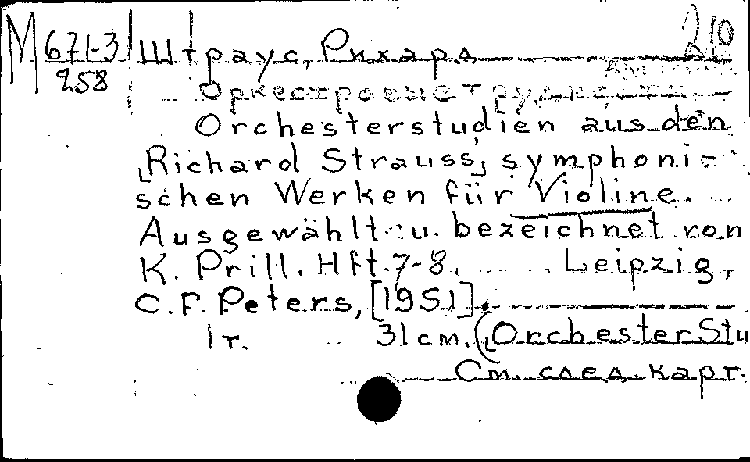 М 671-3 Штраус, Рихард 210
258
Оркестровые трудности
Orchesterstudien aus den
Richard Strauss, symphoni-
schen Werken für Violine.
Ausgewählt u. bezeichnet von
K. Prill. Hft. 7-8. Leipzig,
C.F. Peters, [1951].
1 т. 31 cm. (Orchesterstu
См. след. карт.